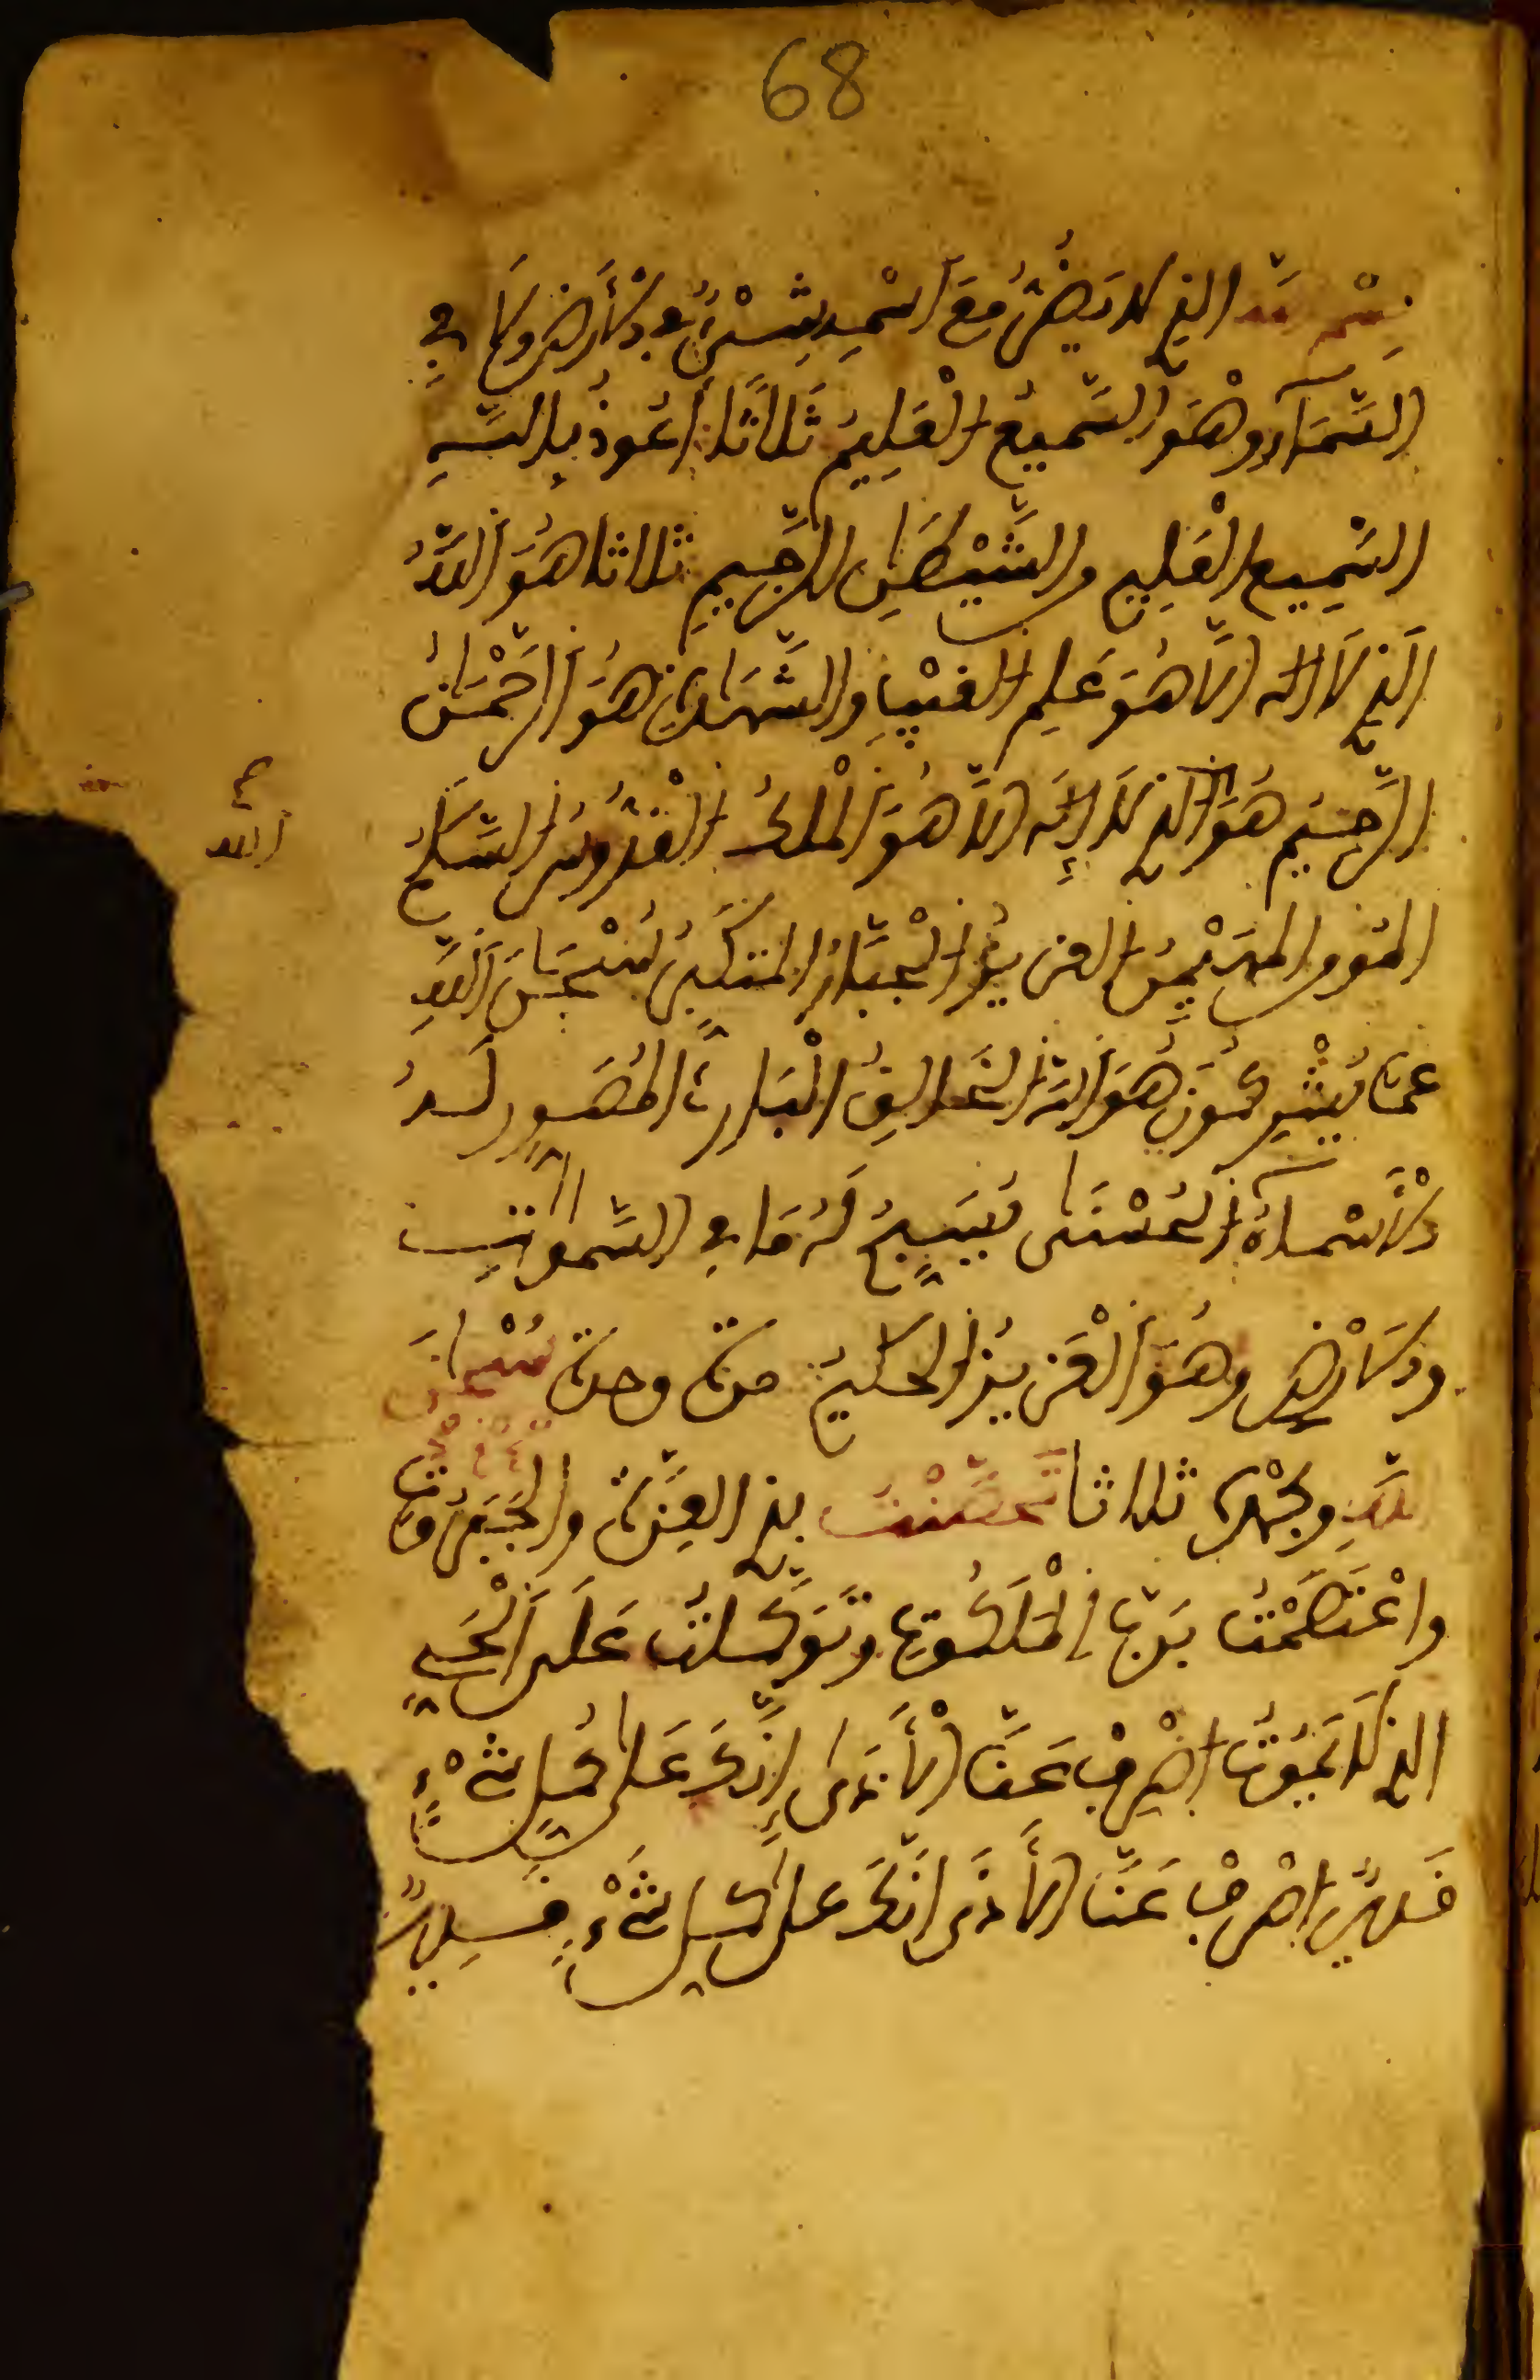 68
بِسْمِ اللَّهِ الذِي لا يَضُرُّ مَعَ اسْمِهِ شَيْءٌ فِي الأَرْضِ وَلا فِي
السَّمَاءِ وَهْوَ السَّمِيعُ الْعَلِيمُ ثَلاثًا أَعُوذُ بِاللهِ
السَّمِيعِ الْعَلِيمِ من الشَّيْطَانِ الرَّجِيمِ ثلاثا هُوَ اللَّهُ
الَذِي لا اله الاَّ هُوَ عَلِمُ الغَيْبِ والشَّهَادَةِ هُوَ الرَّحْمَانُ
الرَّحِيمُ هُوَ الذي لا إِلَهَ الاَّ هُوَ الْمَلِكُ الْقُدُّوسُ السَّلامُ
المُومن المهَيْمِنُ العزيزُ الْجَبَّارُ المتكَبِّرُ سُبْحَانَ اللَّهِ
عمَّا يُشْرِكُونَ هُوَ اللهُ الخَالِقُ الْبَارِئُ المُصَوِّر لَهُ
الأَسْمَاءُ الحُسْنَى يُسَبِّحُ لَهُ مَا فِي السَّمواتِ
والأَرْضِ وهُوَ الْعَزِيزُ الحكِيمُ مرة وحدة سُبْحَانَ
اللَّهِ وبحَمْدِهِ ثلاثا تَحَصَّنْتُ بذِي العِزَّةِ والجَبَرُوتِ
واعْتَصَمْتُ بِرَبِّ الْمَلَكُوتِ وتَوَكَّلتُ عَلَى الْحَيِّ
الذي لا يَمُوتُ اصْرِفْ عَنَّا الأَذَى إِنَّكَ عَلَى كُلِّ شَيْءٍ
قَدِيرٌ اصْرِفْ عَنَّا الأَذَى إِنَّكَ عَلَى كُلِّ شَيْءٍ قَدِيرٌ
الله